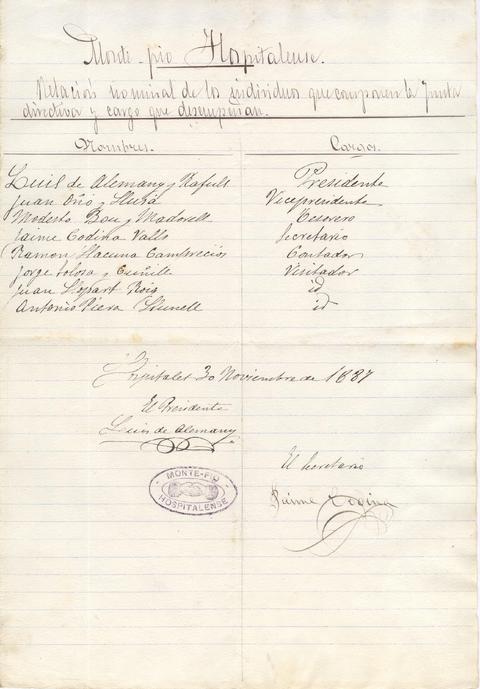 Monte-pio Hospitalense.
Relación nominal de los individuos que componen la Junta
directiva y cargo que desempeñan.
Nombres. Cargos.
Luis de Alemany y Rafuls Presidente
Juan Oño y Llurá Vicepresidente
Modesto Bou y Madorell Tesorero
Jaime Codina Valls Secretario
Ramon Llacuna Cambrecios Contador
Jorge Tolosa y Cuñille Visitador
Juan Llopart Roig id
Antonio Piera id
Hospitalet 30 Noviembre de 1887
El Presidente
Luis de Alemany
El Secretario
MONTE-PIO
HOSPITALENSE
Jaime Codina